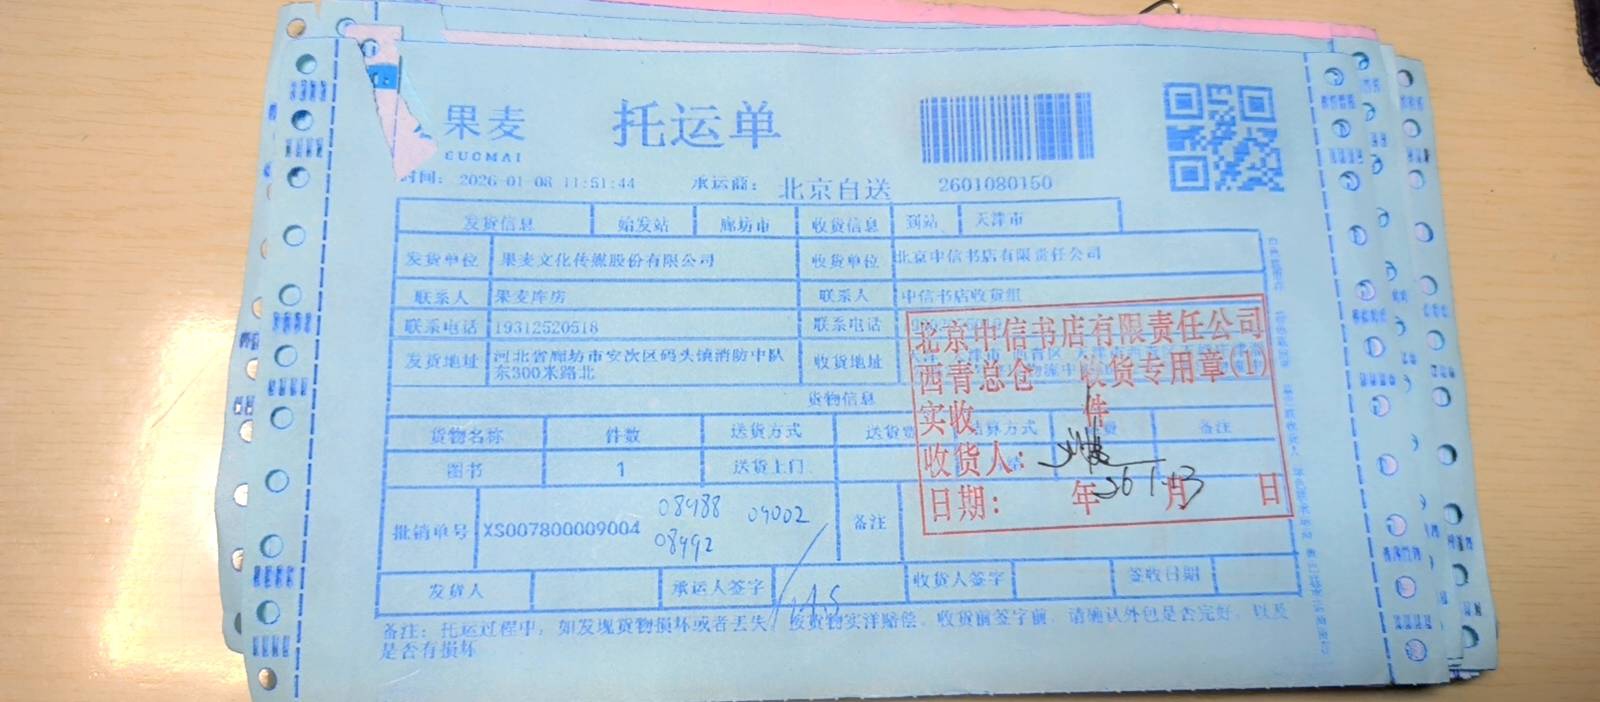 果麦 托运单
GUOMAI
时间: 2026-01-08 11:51:44 承运商: 北京自送 2601080150
发货信息 始发站 廊坊市 收货信息 到站 天津市
发货单位 果麦文化传媒股份有限公司 收货单位 北京中信书店有限责任公司
联系人 果麦库房 联系人 中信书店收货组
联系电话 19312520518 联系电话
发货地址 河北省廊坊市安次区码头镇消防中队 收货地址
东300米路北
货物信息
货物名称 件数 送货方式 送货费 结算方式 备注
图书 1 送货上门
批销单号 XS007800009004 08488 04002 备注
08492
发货人 承运人签字 收货人签字 签收日期
备注: 托运过程中, 如发现货物损坏或者丢失, 按货物实洋赔偿。收货前签字前, 请确认外包是否完好, 以及
是否有损坏
北京中信书店有限责任公司
西青总仓 收货专用章(1)
实收 件
收货人:
日期: 年 月 日